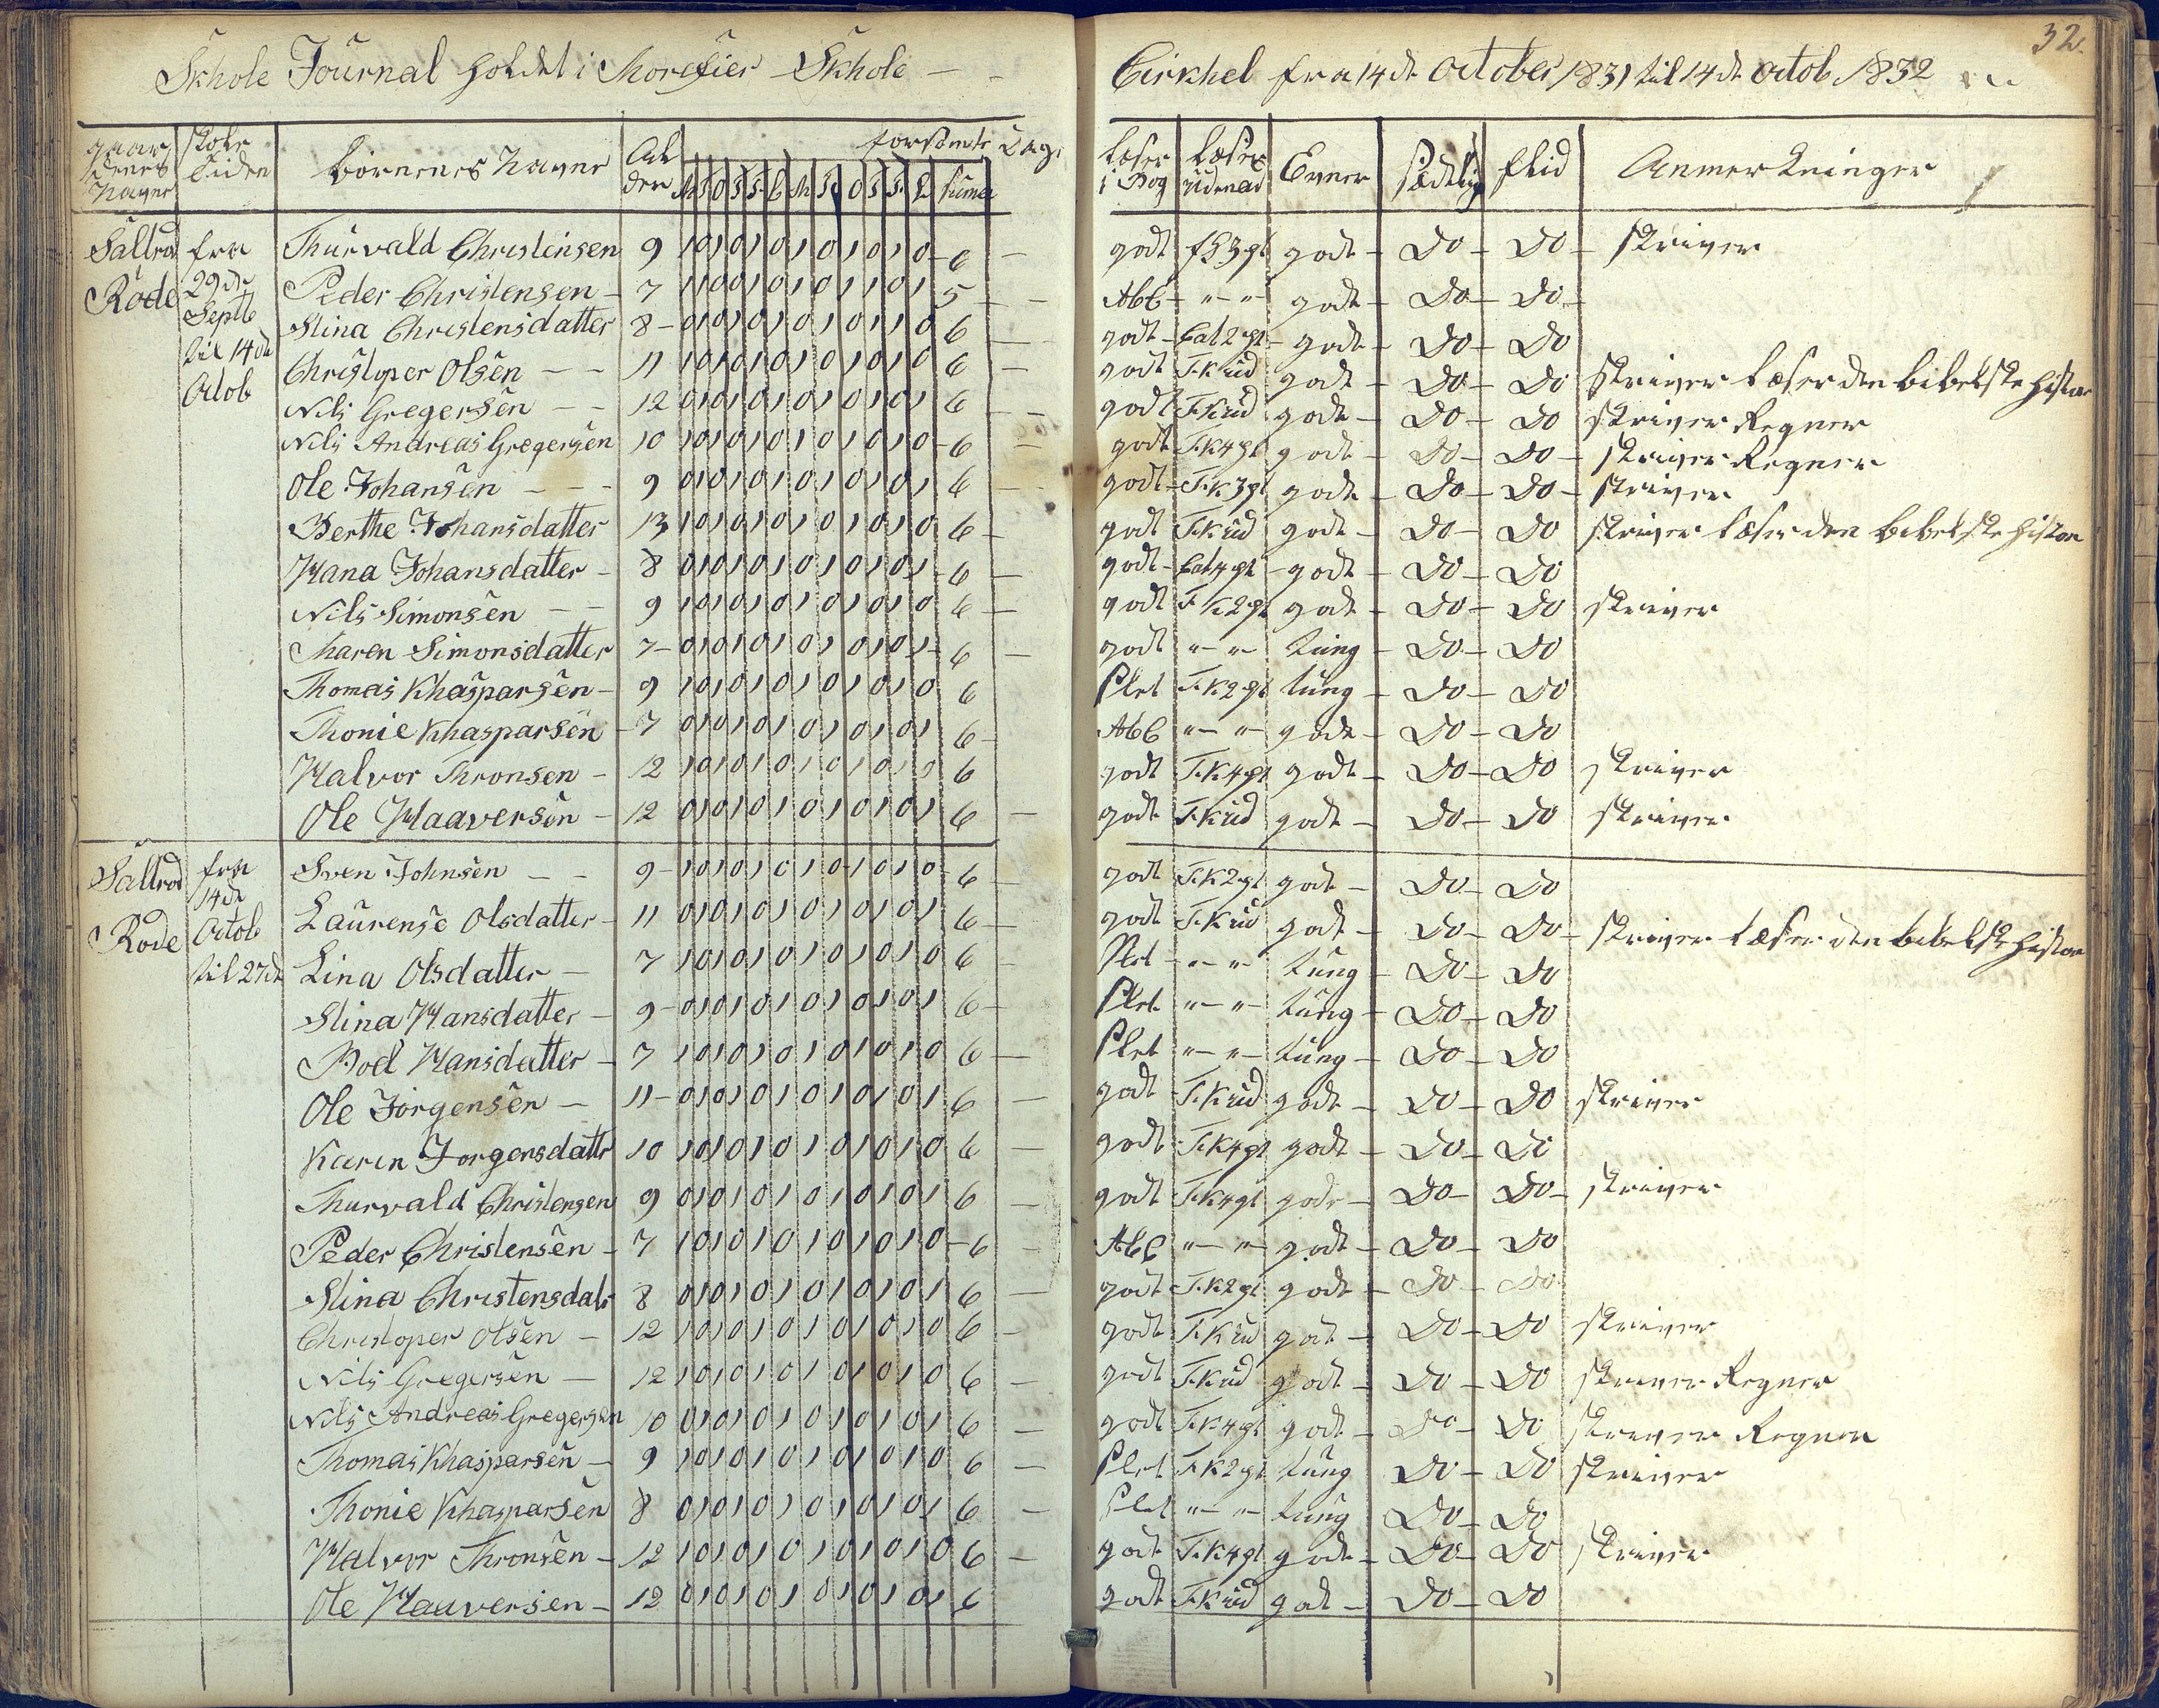 32.
Skhole Journal holdet i Morefier Skhole Cirkhel fra 14de October 1831 til 14de Octob 1832
gaardenes Navne Skole Tiden Börnenes Navne Alder forsömte Dage Suma Læser i Bog Læser udenad Evner Sædelig flid Anmerkninger
Saltröd Röde fra 29de Septb til 14de Octob
Thurvald Christensen 9 1 0 1 0 1 0 1 0 1 0 1 0 6 godt godt Do Do skriver
Peder Christensen 7 5 Abc " " godt Do Do
Stina Christensdatter 8 0 1 0 1 0 1 0 1 0 1 0 6 godt Cat 2 pt godt Do Do
Christoper Olsen 11 1 0 1 0 1 0 1 0 1 0 1 0 6 godt F.K ud godt Do Do skriver læser den bibelske histor
Nils Gregersen 12 0 1 0 1 0 1 0 1 0 1 0 1 6 godt F.K ud godt Do Do skriver Regner
Nils Andreas Gregersen 10 1 0 1 0 1 0 1 0 1 0 1 0 6 godt F.K 4 pt godt Do Do skriver Regner
Ole Johansen 9 0 1 0 1 0 1 0 1 0 1 0 1 6 godt F.K 3 pt godt Do Do skriver
Berthe Johansdatter 13 1 0 1 0 1 0 1 0 1 0 1 0 6 godt F.K ud godt Do Do skriver læser den bibelske histor
Hana Johansdatter 8 0 1 0 1 0 1 0 1 0 1 0 1 6 godt Cat 4 pt godt Do Do
Nils Simonsen 9 1 0 1 0 1 0 1 0 1 0 1 0 6 godt F K 2 pt godt Do Do skriver
Maren Simonsdatter 7 0 1 0 1 0 1 0 1 0 1 0 1 6 godt " " tung Do Do
Thomas Khasparsen 9 1 0 1 0 1 0 1 0 1 0 1 0 6 Slet F.K 2 pt tung Do Do
Thonie Khasparsen 7 0 1 0 1 0 1 0 1 0 1 0 1 6 Abc " " godt Do Do
Halvor Thronsen 12 1 0 1 0 1 0 1 0 1 0 1 0 6 godt F.K 4 pt godt Do Do skriver
Ole Haaversen 12 0 1 0 1 0 1 0 1 0 1 0 1 6 godt F.K ud godt Do Do skriver
Saltröd Röde fra 14de Octob til 27de
Sven Johnsen 9 1 0 1 0 1 0 1 0 1 0 1 0 6 godt F.K 2 pt godt Do Do
Laurense Olsdatter 11 0 1 0 1 0 1 0 1 0 1 0 1 6 godt F.K ud godt Do Do skriver læser den bibelske histor
Lina Olsdatter 7 1 0 1 0 1 0 1 0 1 0 1 0 6 Slet " " tung Do Do
Stina Hansdatter 9 0 1 0 1 0 1 0 1 0 1 0 1 6 Slet " " tung Do Do
Boel Hansdatter 7 1 0 1 0 1 0 1 0 1 0 1 0 6 Slet " " tung Do Do
Ole Jorgensen 11 0 1 0 1 0 1 0 1 0 1 0 1 6 godt F.K ud godt Do Do skriver
Karen Jorgensdattr 10 1 0 1 0 1 0 1 0 1 0 1 0 6 godt F.K 4 pt godt Do Do
Thurvald Christensen 9 0 1 0 1 0 1 0 1 0 1 0 1 6 godt F.K 4 pt godt Do Do skriver
Peder Christensen 7 1 0 1 0 1 0 1 0 1 0 1 0 6 Abc " " godt Do Do
Stina Christensdatr 8 0 1 0 1 0 1 0 1 0 1 0 1 6 godt F.K 2 pt godt Do Do
Christoper Olsen 12 1 0 1 0 1 0 1 0 1 0 1 0 6 godt F.K ud godt Do Do skriver
Nils Gregersen 12 1 0 1 0 1 0 1 0 1 0 1 0 6 godt F.K ud godt Do Do skriver Regner
Nils Andreas Gregersen 10 0 1 0 1 0 1 0 1 0 1 0 1 6 godt F.K 4 pt godt Do Do skriver Regner
Thomas Khasparsen 9 1 0 1 0 1 0 1 0 1 0 1 0 6 Slet F.K 2 pt tung Do Do skriver
Thonie Khasparsen 8 0 1 0 1 0 1 0 1 0 1 0 1 6 Slet " " tung Do Do
Halvor Thronsen 12 1 0 1 0 1 0 1 0 1 0 1 0 6 godt F.K 4 pt godt Do Do skriver
Ole Haaversen 12 0 1 0 1 0 1 0 1 0 1 0 1 6 godt F.K ud godt Do Do